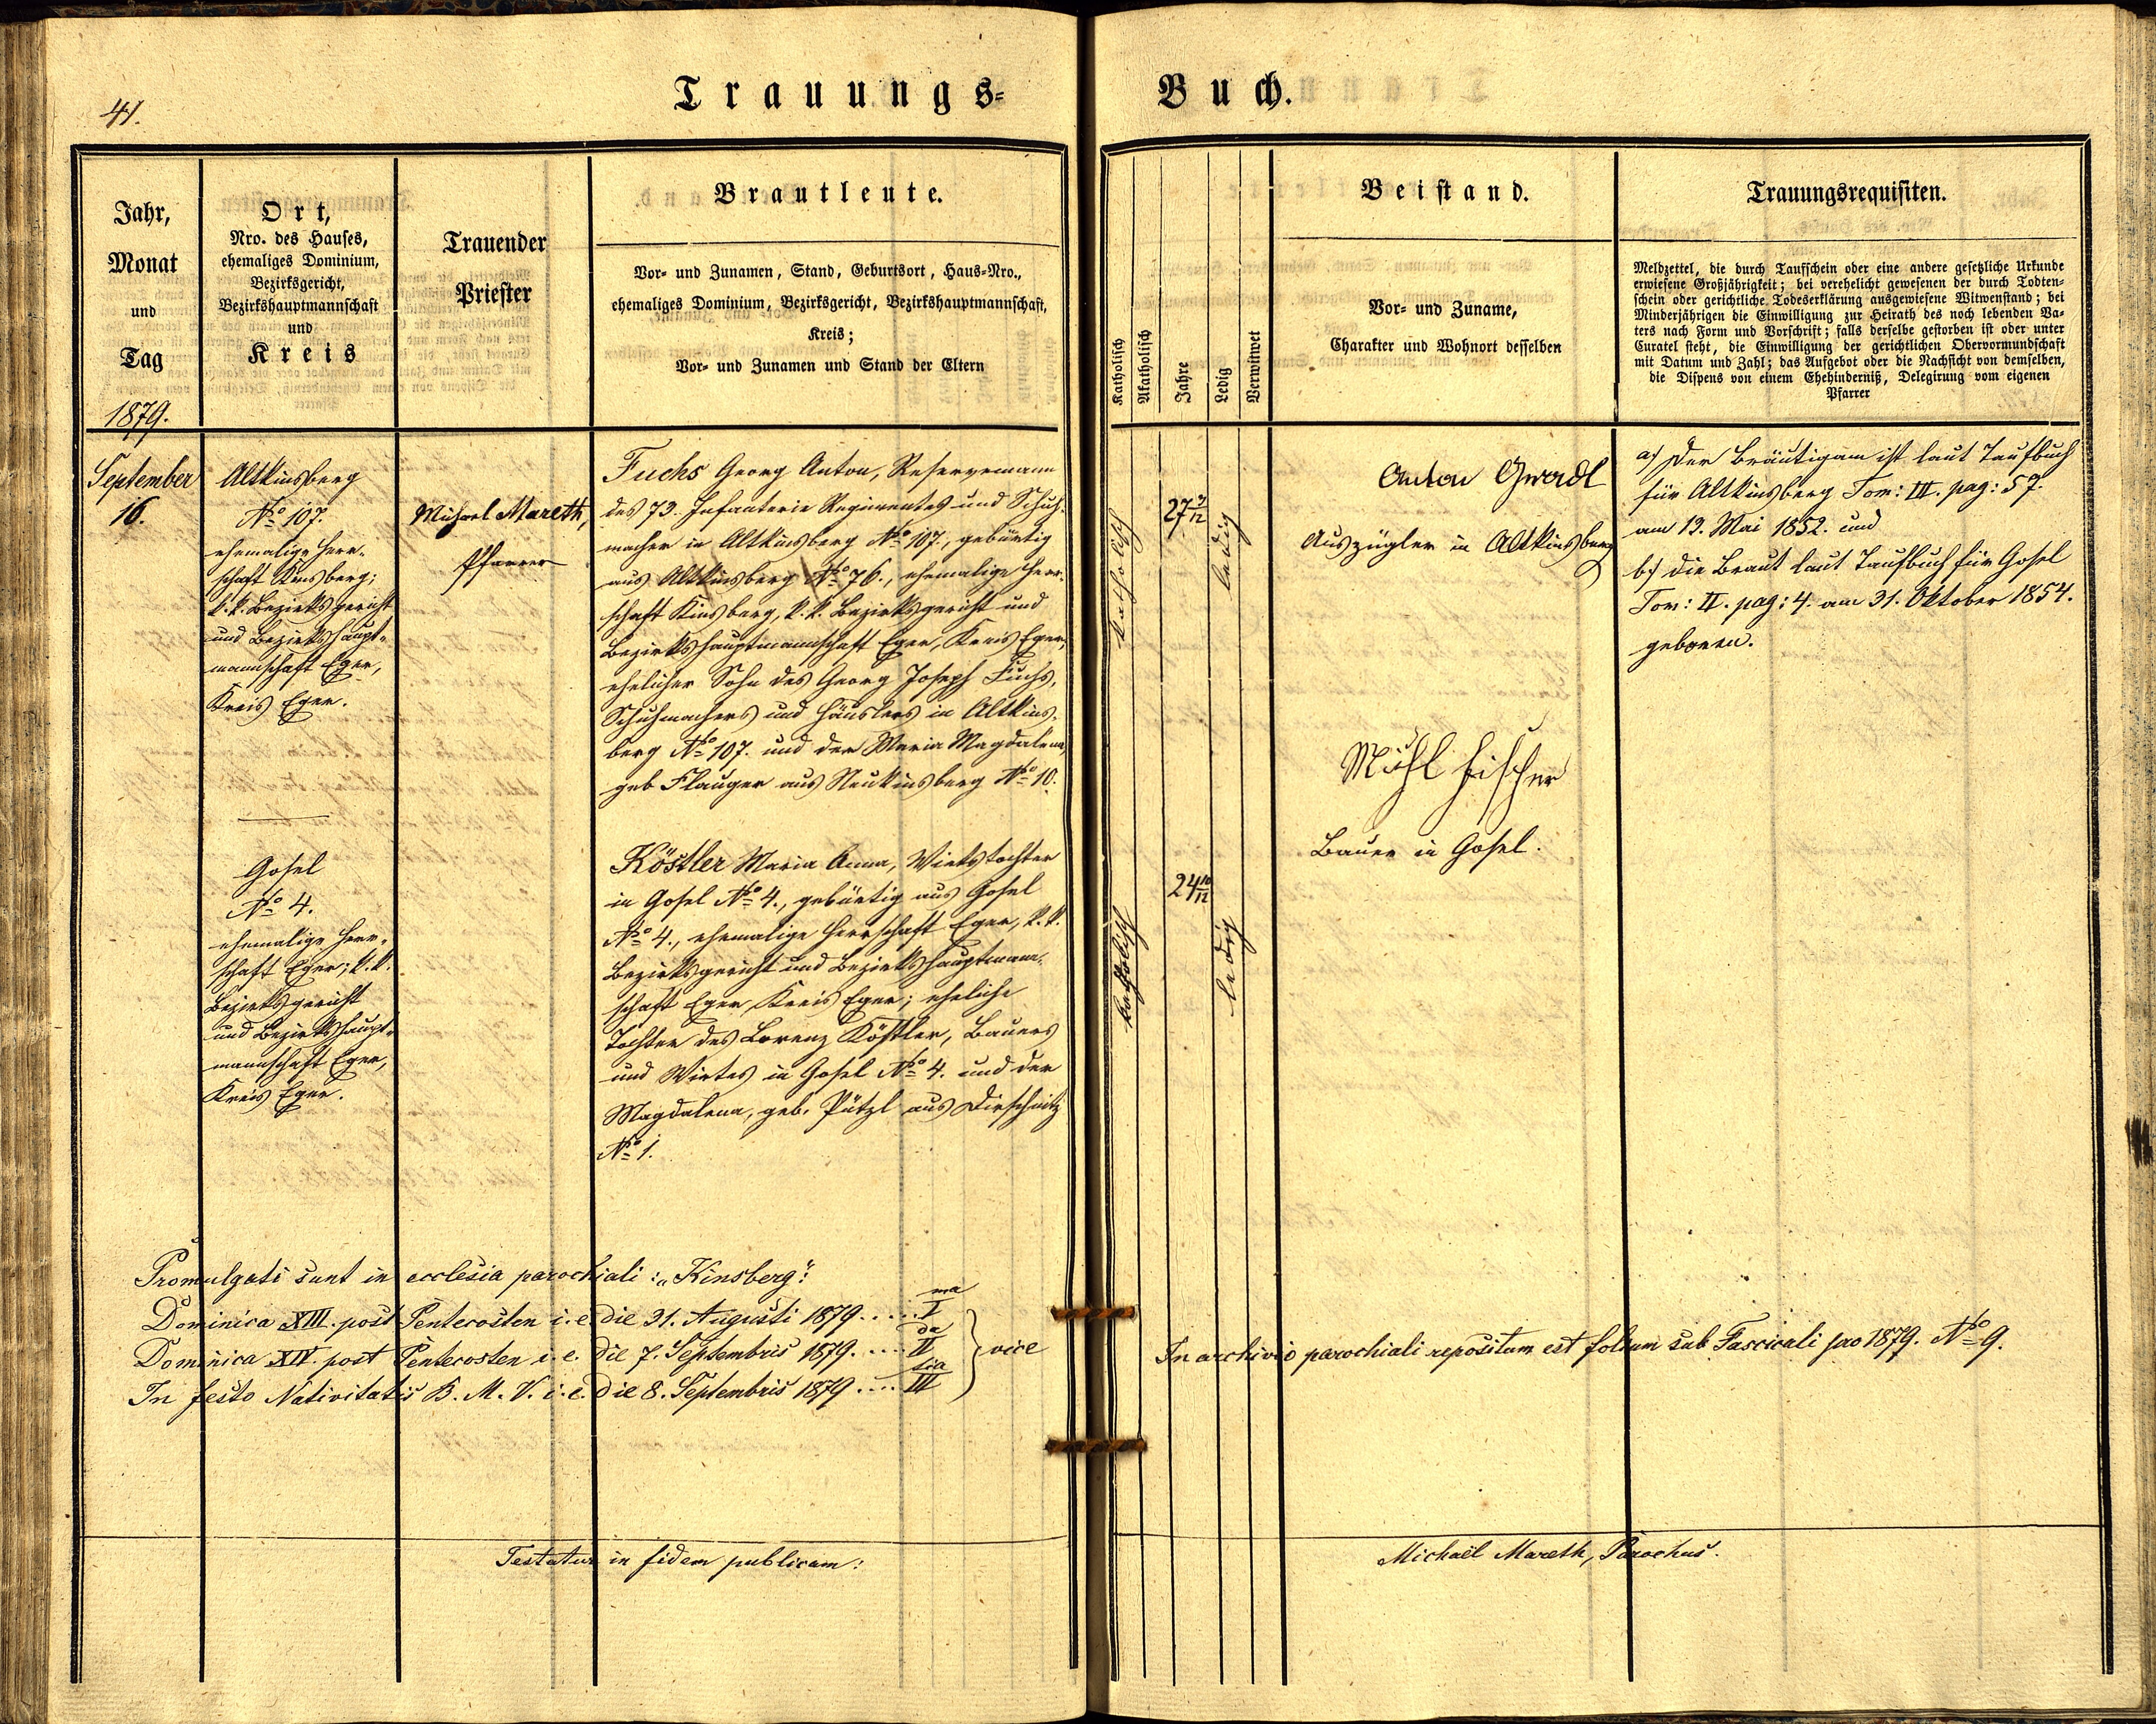 41.
Trauungs-
Buch.
Jahr,
Monat
und
Tag
1879.
Ort,
Nro. des Hauses,
ehemaliges Dominium,
Bezirksgericht,
Bezirkshauptmannschaft
und
Kreis
Trauender
Priester
Brautleute.
Vor- und Zunamen, Stand, Geburtsort, Haus-Nro.,
ehemaliges Dominium, Bezirksgericht, Bezirkshauptmannschaft,
Kreis;
Vor- und Zunamen und Stand der Eltern
Katholisch
Akatholisch
Jahre
Ledig
Verwitwet
Beistand.
Vor- und Zuname,
Charakter und Wohnort desselben
Trauungsrequisiten.
Meldzettel, die durch Taufschein oder eine andere gesetzliche Urkunde
erwiesene Großjährigkeit; bei verehelicht gewesenen der durch Todten-
schein oder gerichtliche Todeserklärung ausgewiesene Witwenstand; bei
Minderjährigen die Einwilligung zur Heirath des noch lebenden Va-
ters nach Form und Vorschrift; falls derselbe gestorben ist oder unter
Curatel steht, die Einwilligung der gerichtlichen Obervormundschaft
mit Datum und Zahl; das Aufgebot oder die Nachsicht von demselben,
die Dispens von einem Ehehinderniß, Delegirung vom eigenen
Pfarrer
September
16.
Altkinsberg
No 107.
ehemalige Herr-
schaft Kinsberg;
k. k. Bezirksgericht
und Bezirkshaupt-
mannschaft Eger,
Kreis Eger.
Michael Mareth,
Pfarrer
Fuchs Georg Anton, Reservemann
des 73. Infanterie Regimentes und Schuh-
macher in Altkinsberg No 107., gebürtig
aus Altkinsberg No 76., ehemalige Herr-
schaft Kinsberg, k. k. Bezirksgericht und
Bezirkshauptmannschaft Eger, Kreis Eger,
ehelicher Sohn des Georg Joseph Fuchs,
Schuhmachers und Häuslers in Altkins-
berg No 107. und der Maria Magdalena,
geb Flauger aus Neukinsberg No 10.
katholisch
27 3/12
ledig
Anton Gwadl
Auszügler in Altkinsberg
a) Der Bräutigam ist laut Taufbuch
für Altkinsberg Tom: III. pag: 57.
am 13. Mai 1852. und
b) die Braut laut Taufbuch für Gosel
Tom: II. pag: 4. am 31. Oktober 1854.
geboren.
Gosel
No 4.
ehemalige Herr-
schaft Eger; k. k.
Bezirksgericht
und Bezirkshaupt-
mannschaft Eger,
Kreis Eger.
Köstler Maria Anna, Wirtstochter
in Gosel No 4., gebürtig aus Gosel
No 4., ehemalige Herrschaft Eger, k. k.
Bezirksgericht und Bezirkshauptmann-
schaft Eger, Kreis Eger; eheliche
Tochter des Lorenz Köstler, Bauers
und Wirtes in Gosel No 4. und der
Magdalena, geb. Pützl aus Dirschnitz
No 1.
katholisch
24 10/12
ledig
Michl Fischer
Bauer in Gosel.
Promulgati sunt in ecclesia parochiali: „Kinsberg":
Dominica XIII. post Pentecosten i. e. die 31. Augusti 1879..... I ma
Dominica XIV. post Pentecosten i. e. die 7. Septembris 1879..... II da } vice
In festo Nativitatis B. M. V. i. e. die 8. Septembris 1879..... III tia
In archivio parochiali repositum est folium sub Fasciculi pro 1879. No 9.
Testatur in fidem publicam:
Michaël Mareth, Parochus.